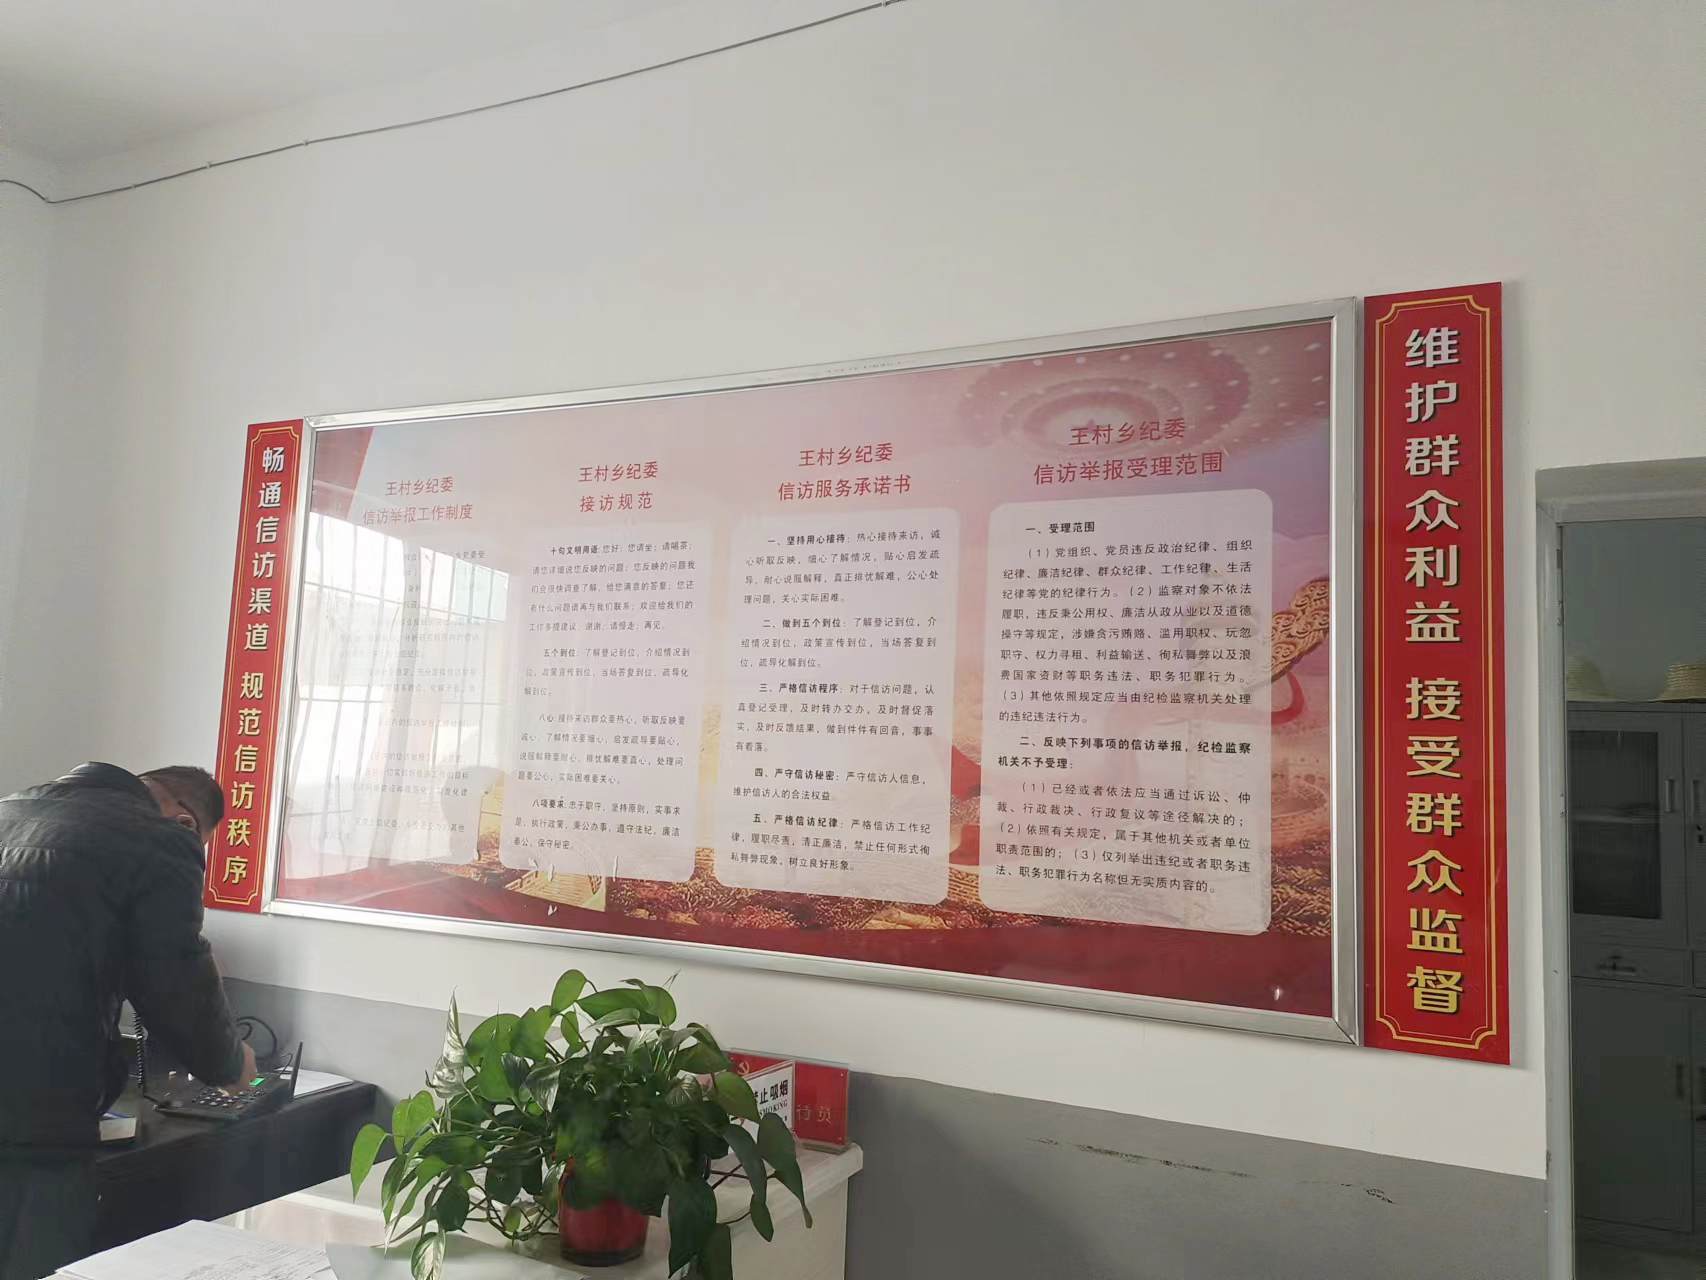 畅通信访渠道 规范信访秩序
王村乡纪委
信访举报工作制度
王村乡纪委
接访规范
十句文明用语:您好;您请坐;请喝茶;
请您详细说您反映的问题;您反映的问题我
们会很快调查了解,给您满意的答复;您还
有什么问题请再与我们联系;欢迎给我们的
工作多提建议;谢谢;请慢走;再见。
五个到位:了解登记到位,介绍情况到
位,政策宣传到位,当场答复到位,疏导化
解到位。
八心:接待来访群众要热心,听取反映要
诚心,了解情况要细心,启发疏导要贴心,
说服解释要耐心,排忧解难要真心,处理问
题要公心,实际困难要关心。
八项要求:忠于职守,坚持原则,实事求
是,执行政策,秉公办事,遵守法纪,廉洁
奉公,保守秘密。
王村乡纪委
信访服务承诺书
一、坚持用心接待:热心接待来访,诚
心听取反映,细心了解情况,贴心启发疏
导,耐心说服解释,真正排忧解难,公心处
理问题,关心实际困难。
二、做到五个到位:了解登记到位,介
绍情况到位,政策宣传到位,当场答复到
位,疏导化解到位。
三、严格信访程序:对于信访问题,认
真登记受理,及时转办交办,及时督促落
实,及时反馈结果,做到件件有回音,事事
有着落。
四、严守信访秘密:严守信访人信息,
维护信访人的合法权益。
五、严格信访纪律:严格信访工作纪
律,履职尽责,清正廉洁,禁止任何形式徇
私舞弊现象,树立良好形象。
王村乡纪委
信访举报受理范围
一、受理范围
(1)党组织、党员违反政治纪律、组织
纪律、廉洁纪律、群众纪律、工作纪律、生活
纪律等党的纪律行为。(2)监察对象不依法
履职,违反秉公用权、廉洁从政从业以及道德
操守等规定,涉嫌贪污贿赂、滥用职权、玩忽
职守、权力寻租、利益输送、徇私舞弊以及浪
费国家资财等职务违法、职务犯罪行为。
(3)其他依照规定应当由纪检监察机关处理
的违纪违法行为。
二、反映下列事项的信访举报,纪检监察
机关不予受理:
(1)已经或者依法应当通过诉讼、仲
裁、行政裁决、行政复议等途径解决的;
(2)依照有关规定,属于其他机关或者单位
职责范围的;(3)仅列举出违纪或者职务违
法、职务犯罪行为名称但无实质内容的。
维护群众利益 接受群众监督
止吸烟
MOKING
待员